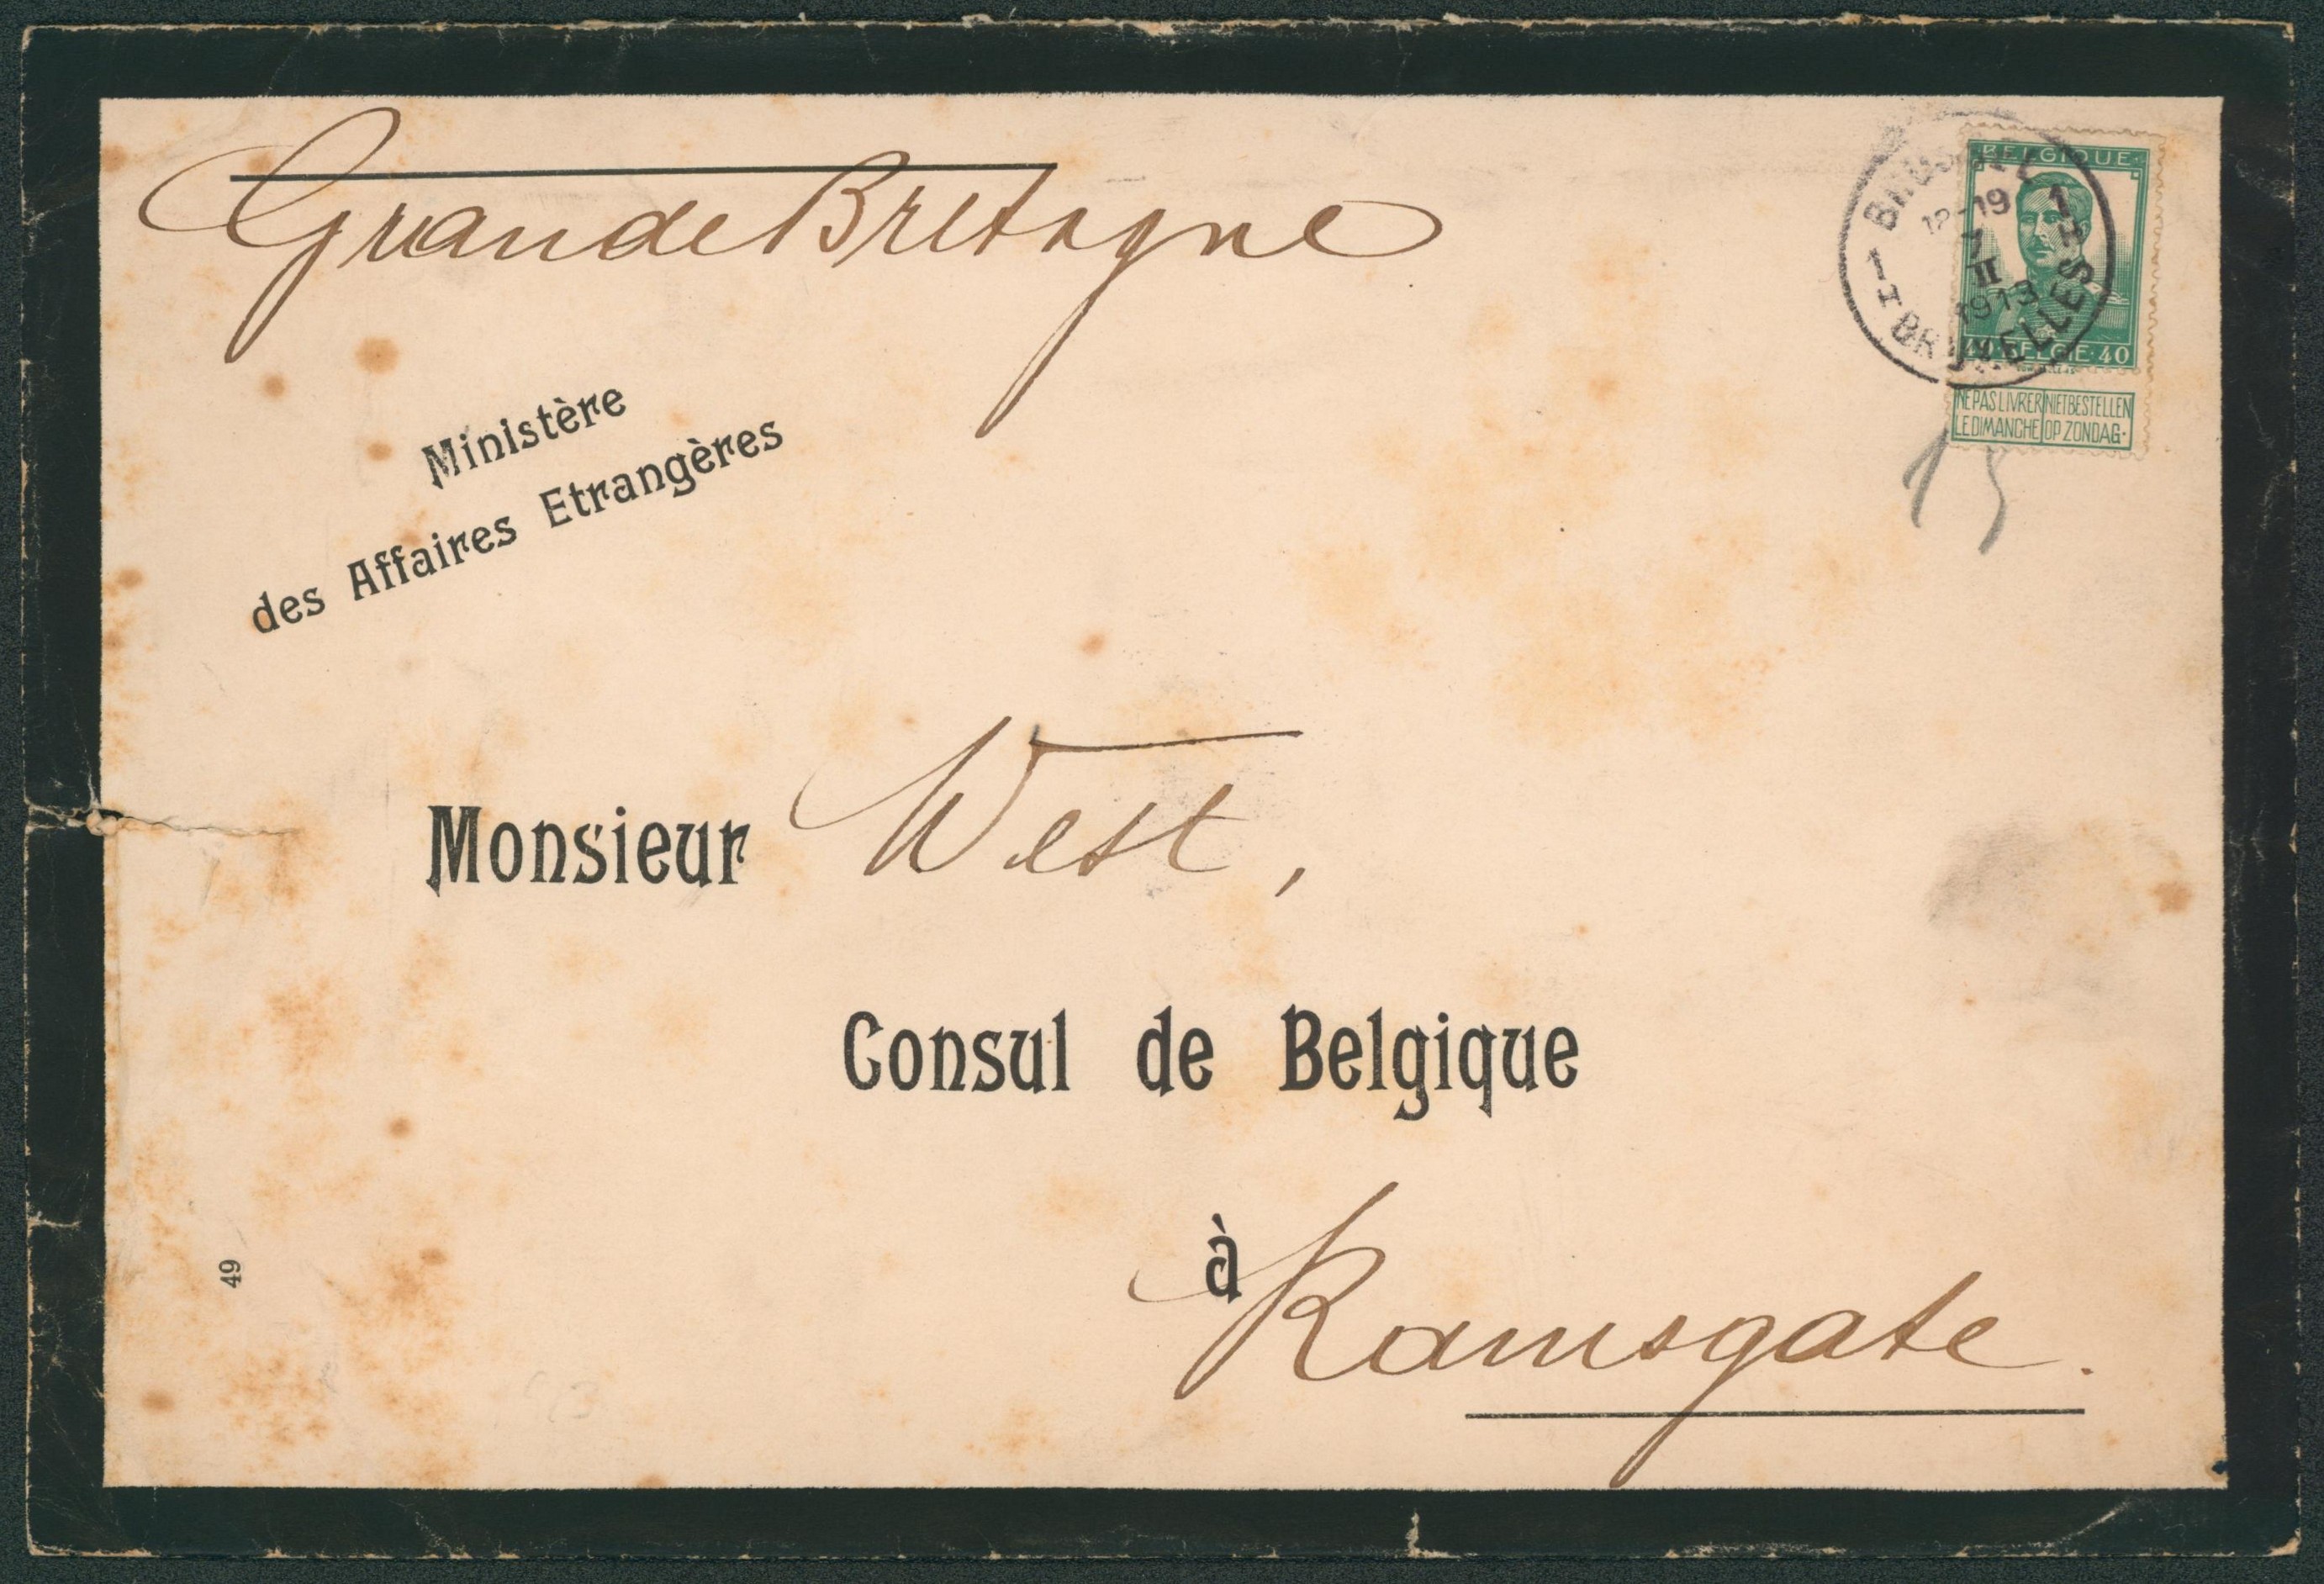 Grande Bretagne
BELGIQUE
BRUSSEL
1 18-19 1
7
II
1913
BRUXELLES
40 BELGIE 40
NE PAS LIVRER NIET BESTELLEN
LE DIMANCHE OP ZONDAG
15
Ministère
des Affaires Etrangères
Monsieur West,
Consul de Belgique
à Ramsgate.
49